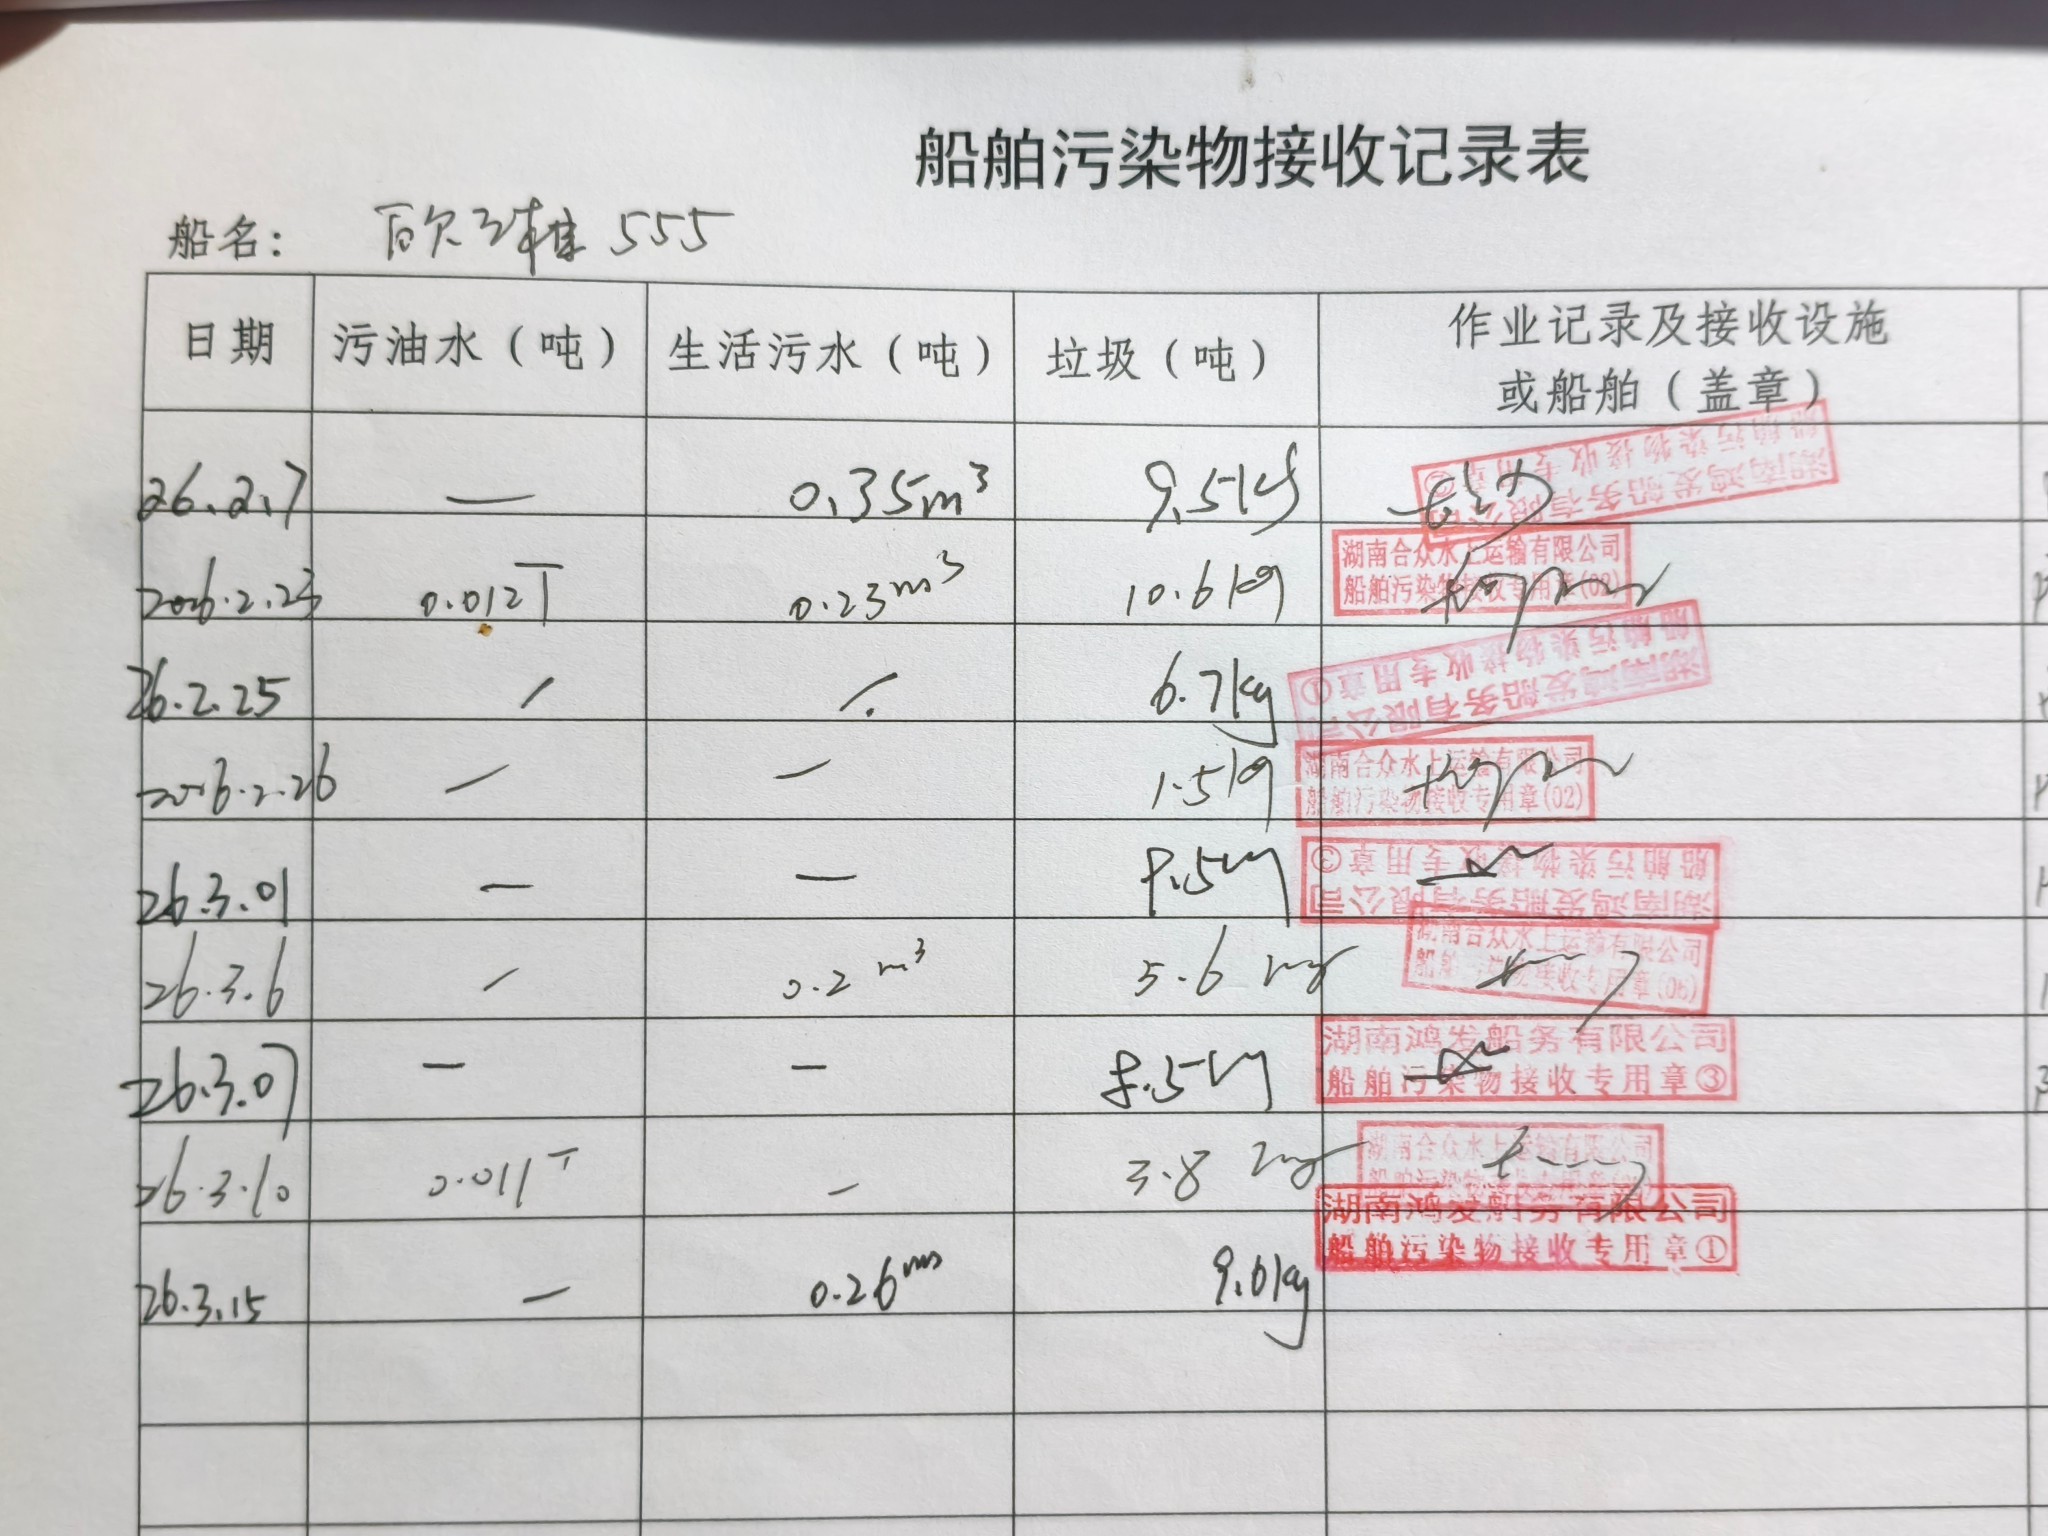 船舶污染物接收记录表
船名: 555
日期 污油水（吨） 生活污水（吨） 垃圾（吨） 作业记录及接收设施
或船舶（盖章）
26.2.7 — 0.35m³ 9.5kg 长沙 湖南鸿发船务有限公司
船舶污染物接收专用章
2026.2.23 0.012T 0.23m³ 10.6kg 湖南合众水上运输有限公司
船舶污染物接收专用章(02)
26.2.25 / / 6.7kg 湖南鸿发船务有限公司
船舶污染物接收专用章①
2026.2.26 — — 1.5kg 湖南合众水上运输有限公司
船舶污染物接收专用章(02)
26.3.01 — — 8.5kg 湖南鸿发船务有限公司
船舶污染物接收专用章③
26.3.6 / 0.2m³ 5.6kg 湖南合众水上运输有限公司
船舶污染物接收专用章(06)
26.3.07 — — 8.5kg 湖南鸿发船务有限公司
船舶污染物接收专用章③
26.3.10 0.011T — 3.8kg 湖南合众水上运输有限公司
船舶污染物接收专用章
26.3.15 — 0.26m³ 9.6kg 湖南鸿发船务有限公司
船舶污染物接收专用章①